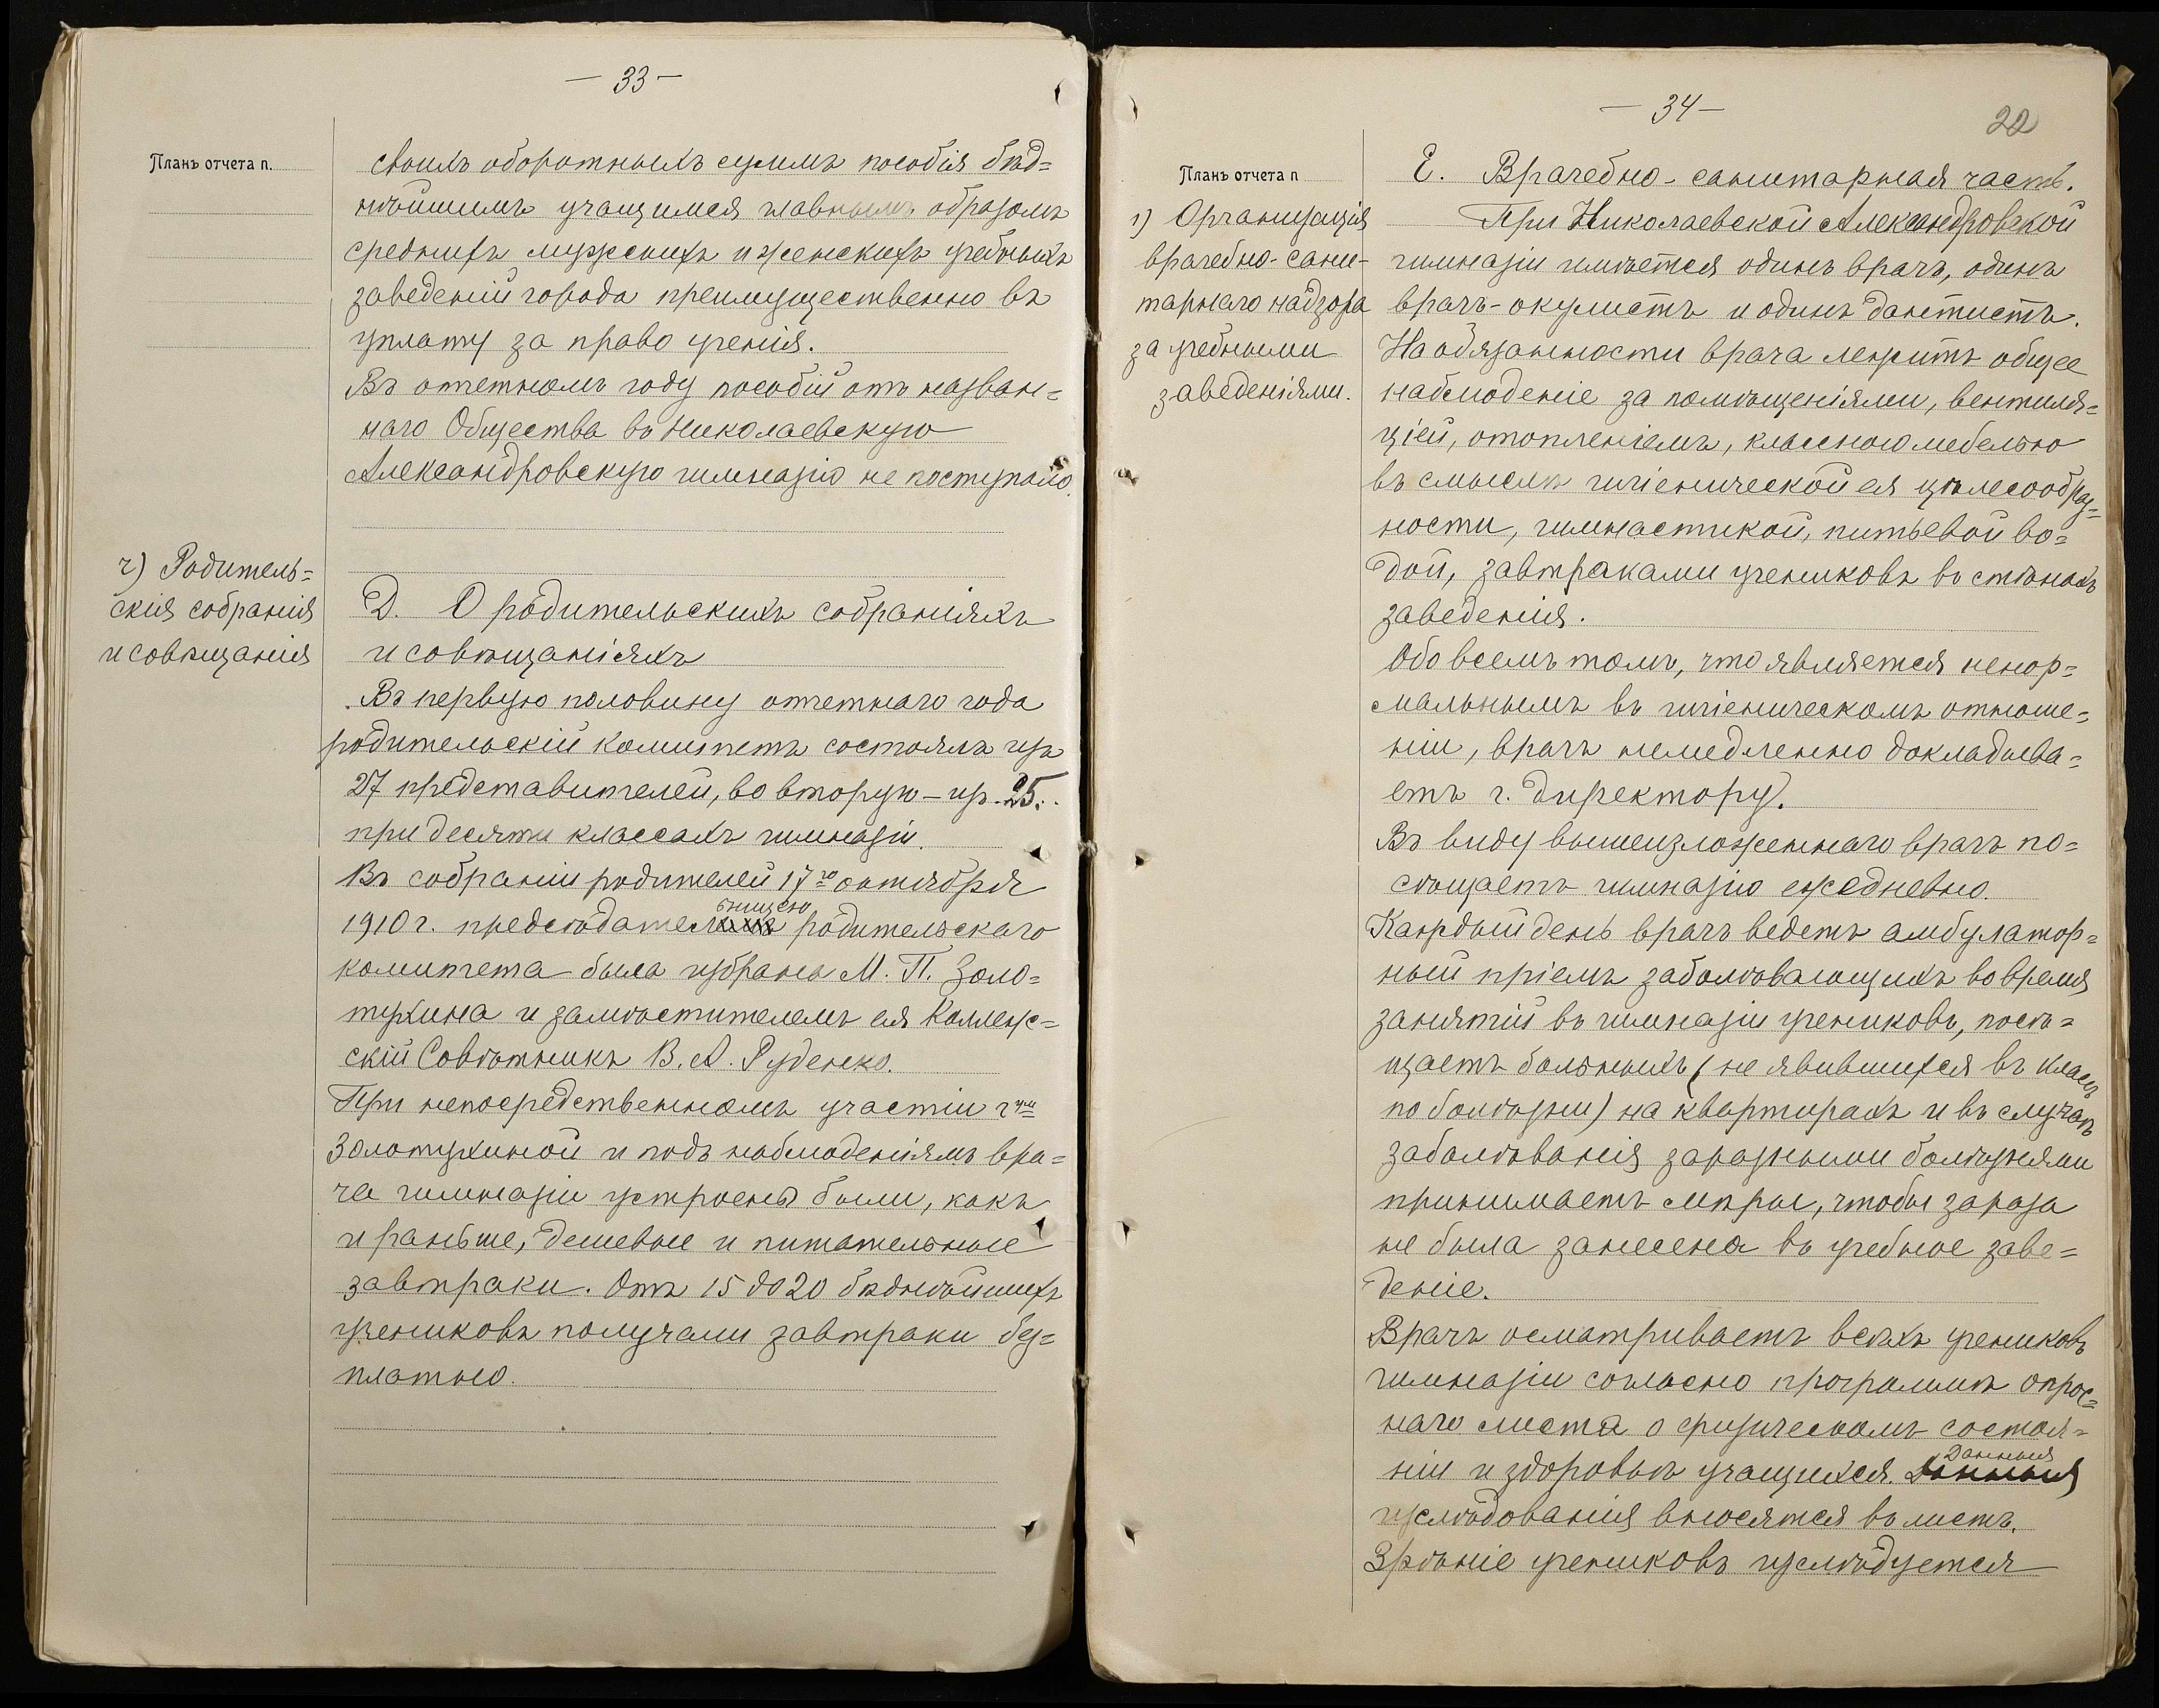 — 33 —
Планъ отчета п.
своихъ оборотныхъ суммъ пособія бѣд=
нѣйшимъ учащимся главнымъ образомъ
среднихъ мужскихъ и женскихъ учебныхъ
заведеній города преимущественно въ
уплату за право ученія.
Въ отчетномъ году пособій отъ назван=
наго Общества въ Николаевскую
Александровскую гимназію не поступало.
г) Родитель=
скія собранія
и совѣщанія
Д. О родительскихъ собраніяхъ
и совѣщаніяхъ
Въ первую половину отчетнаго года
родительскій комитетъ состоялъ изъ
27 представителей, во вторую — изъ 25.
при десяти классахъ гимназіи.
Въ собраніи родителей 17го октября
ьницею
1910 г. предсѣдателемъ родительскаго
комитета была избрана М. П. Золо=
тухина и замѣстителемъ ея Коллеж=
скій Совѣтникъ В. А. Руденко.
При непосредственномъ участіи г-жи
Золотухиной и подъ наблюденіямъ вра=
ча гимназіи устроены были, какъ
и раньше, дешевые и питательные
завтраки. Отъ 15 до 20 бѣднѣйшихъ
учениковъ получали завтраки без=
платно.
— 34 —
22
Планъ отчета п
1) Организація
врачебно-сани-
тарнаго надзора
за учебными
заведеніями.
Е. Врачебно-санитарная часть.
При Николаевской Александровской
гимназіи имѣется одинъ врачъ, одинъ
врачъ-окулистъ и одинъ дантистъ.
На обязанности врача лежитъ общее
наблюденіе за помѣщеніями, вентиля=
ціей, отопленіемъ, классною мебелью
въ смыслѣ гигіенической ея цѣлесообраз=
ности, гимнастикой, питьевой во=
дой, завтраками учениковъ въ стѣнахъ
заведенія.
Обо всемъ томъ, что является ненор=
мальнымъ въ гигіеническомъ отноше=
ніи, врачъ немедленно докладыва=
етъ г. Директору.
Въ виду вышеизложеннаго врачъ по=
сѣщаетъ гимназію ежедневно.
Каждый день врачъ ведетъ амбулатор=
ный пріемъ заболѣвающихъ во время
занятій въ гимназіи учениковъ, посѣ=
щаетъ больныхъ (не явившихся въ классъ
по болѣзни) на квартирахъ и въ случаѣ
заболѣванія заразными болѣзнями
принимаетъ мѣры, чтобы зараза
не была занесена въ учебное заве=
деніе.
Врачъ осматриваетъ всѣхъ учениковъ
гимназіи согласно программѣ опрос=
наго листа о физическомъ состоя=
Данныя
ніи и здоровьѣ учащихся. Данныя
изслѣдованія вносятся въ листъ.
Зрѣніе учениковъ изслѣдуется